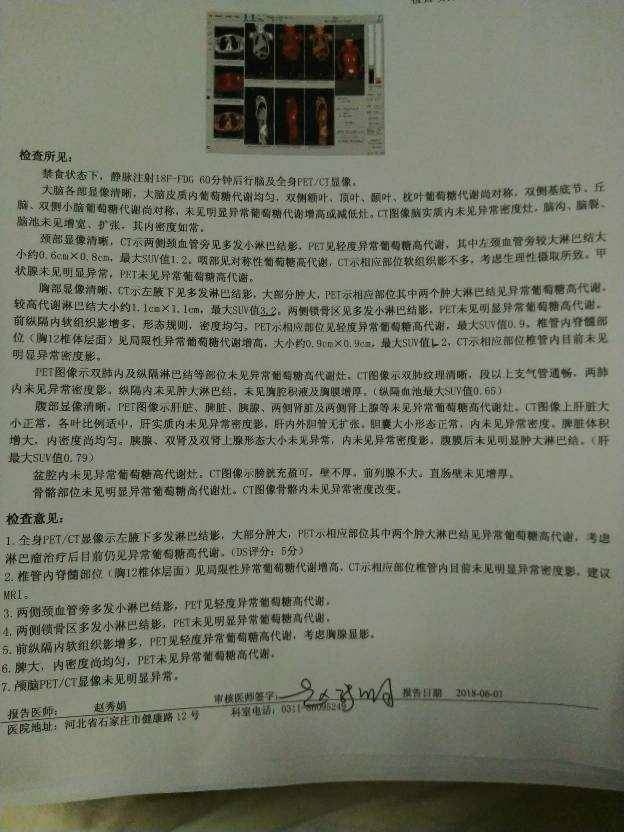 检查所见：
禁食状态下，静脉注射18F-FDG 60分钟后行脑及全身PET/CT显像。
大脑各部显像清晰，大脑皮质内葡萄糖代谢均匀，双侧额叶、顶叶、颞叶、枕叶葡萄糖代谢尚对称，双侧基底节、丘
脑、双侧小脑葡萄糖代谢尚对称，未见明显异常葡萄糖代谢增高或减低灶。CT图像脑实质内未见异常密度灶，脑沟、脑裂、
脑池未见增宽、扩张，其内密度如常。
颈部显像清晰，CT示两侧颈血管旁见多发小淋巴结影，PET见轻度异常葡萄糖高代谢，其中左颈血管旁较大淋巴结大
小约0.6cm×0.8cm，最大SUV值1.2。咽部见对称性葡萄糖高代谢，CT示相应部位软组织影不多，考虑生理性摄取所致。甲
状腺未见明显异常，PET未见异常葡萄糖高代谢。
胸部显像清晰，CT示左腋下见多发淋巴结影，大部分肿大，PET示相应部位其中两个肿大淋巴结见异常葡萄糖高代谢，
较高代谢淋巴结大小约1.1cm×1.1cm，最大SUV值3.2。两侧锁骨区见多发小淋巴结影，PET未见明显异常葡萄糖高代谢。
前纵隔内软组织影增多，形态规则，密度均匀，PET示相应部位见轻度异常葡萄糖高代谢，最大SUV值0.9。椎管内脊髓部
位（胸12椎体层面）见局限性异常葡萄糖代谢增高，大小约0.9cm×0.9cm，最大SUV值1.2，CT示相应部位椎管内目前未见
明显异常密度影。
PET图像示双肺内及纵隔淋巴结等部位未见异常葡萄糖高代谢灶。CT图像示双肺纹理清晰，段以上支气管通畅，两肺
内未见异常密度影。纵隔内未见肿大淋巴结。未见胸腔积液及胸膜增厚。（纵隔血池最大SUV值0.65）
腹部显像清晰，PET图像示肝脏、脾脏、胰腺、两侧肾脏及两侧肾上腺等未见异常葡萄糖高代谢灶。CT图像上肝脏大
小正常，各叶比例适中，肝实质内未见异常密度影，肝内外胆管无扩张。胆囊大小形态正常，内未见异常密度。脾脏体积
增大，内密度尚均匀。胰腺、双肾及双肾上腺形态大小未见异常，内未见异常密度影。腹膜后未见明显肿大淋巴结。（肝
最大SUV值0.79）
盆腔内未见异常葡萄糖高代谢灶。CT图像示膀胱充盈可，壁不厚。前列腺不大。直肠壁未见增厚。
骨骼部位未见明显异常葡萄糖高代谢灶。CT图像骨骼内未见异常密度改变。
检查意见：
1.全身PET/CT显像示左腋下多发淋巴结影，大部分肿大，PET示相应部位其中两个肿大淋巴结见异常葡萄糖高代谢，考虑
淋巴瘤治疗后目前仍见异常葡萄糖高代谢。（DS评分：5分）
2.椎管内脊髓部位（胸12椎体层面）见局限性异常葡萄糖代谢增高，CT示相应部位椎管内目前未见明显异常密度影，建议
MRI。
3.两侧颈血管旁多发小淋巴结影，PET见轻度异常葡萄糖高代谢。
4.两侧锁骨区多发小淋巴结影，PET未见明显异常葡萄糖高代谢。
5.前纵隔内软组织影增多，PET见轻度异常葡萄糖高代谢，考虑胸腺显影。
6.脾大，内密度尚均匀，PET未见异常葡萄糖高代谢。
7.颅脑PET/CT显像未见明显异常。
报告医师： 赵秀娟 审核医师签字： 报告日期 2018-06-01
医院地址：河北省石家庄市健康路12号 科室电话：0311-